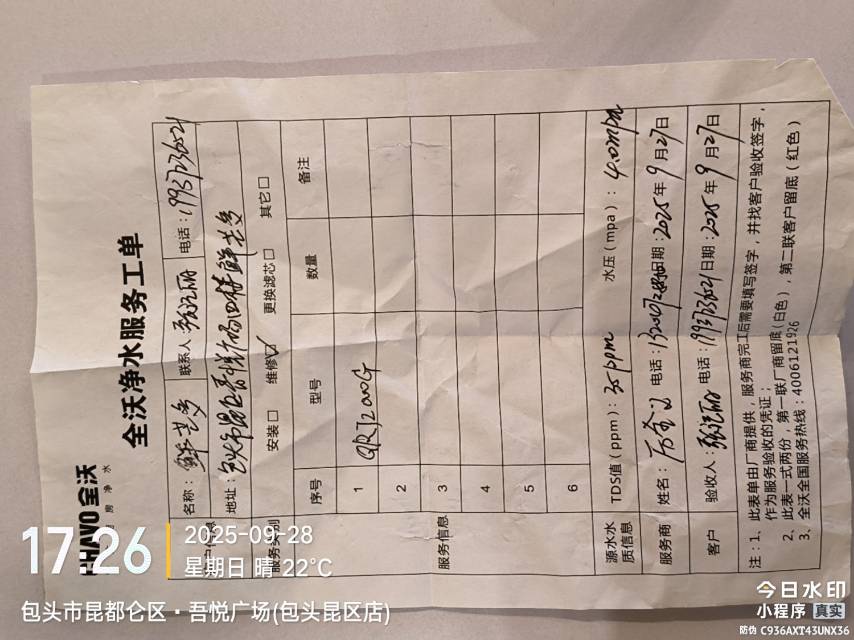 CHAVO全沃
厨房净水
全沃净水服务工单
名称：鲜芋多 联系人 电话：19937236021
地址：
服务类别 安装□ 维修☑ 更换滤芯□ 其它□
服务信息
序号 型号 数量 备注
1 QRJ200G
2
3
4
5
6
源水水质信息 TDS值（ppm）：30ppm 水压（mpa）：4.0mpa
服务商 姓名： 电话： 日期：2025年9月27日
客户 验收人： 电话：19937236021 日期：2025年9月27日
注：1、此表单由厂商提供，服务商完工后需要填写签字，并找客户验收签字，
作为服务验收的凭证；
2、此表一式两份，第一联厂商留底（白色），第二联客户留底（红色）
3、全沃全国服务热线：4006121926
17:26
2025-09-28
星期日 晴 22℃
包头市昆都仑区·吾悦广场(包头昆区店)
今日水印
小程序 真实
防伪 C936AXT43UNX36